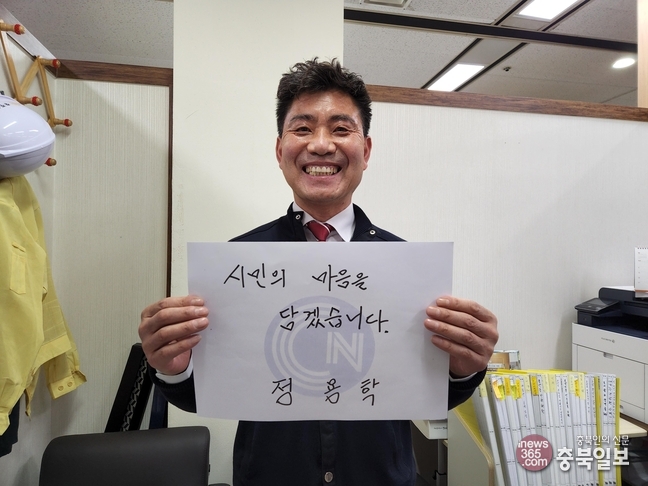 시민의 마음을
담겠습니다.
CN
정용학
inews
365.com
충북인의 신문
충북일보